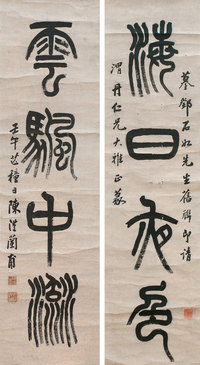 摹鄧石如先生舊聯即請
海日夜色
渭丹仁兄大雅正
雲颿中流
壬午芒種日陳澧蘭甫